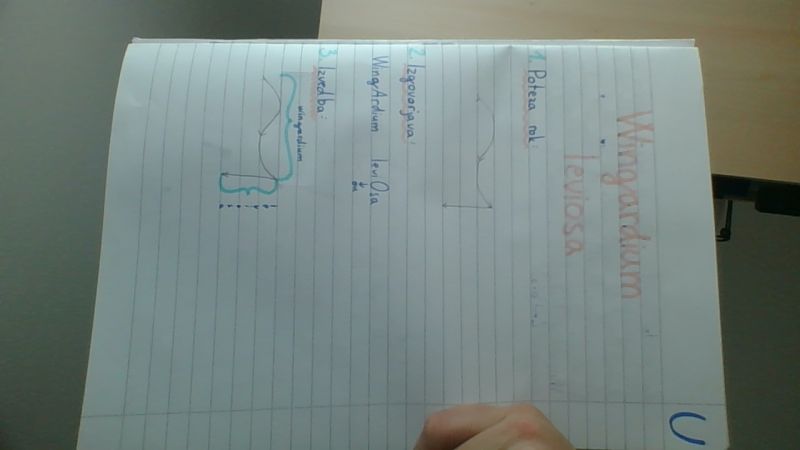 Wingardium
leviosa
1. Poteza rok:
2. Izgovorjava:
WingArdium leviOsa
ou
3. Izvedba:
wingardium